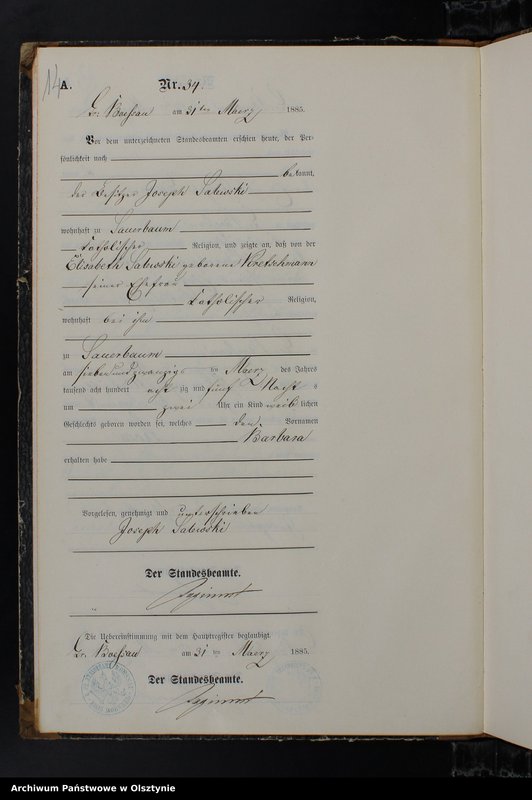 14
A.
Nr. 34.
Gr. Boessau am 31ten Maerz 1885.
Vor dem unterzeichneten Standesbeamten erschien heute, der Per-
sönlichkeit nach
bekannt,
der Besitzer Joseph Salewski
wohnhaft zu Sauerbaum
katholischer Religion, und zeigte an, daß von der
Elisabeth Salewski geborene Kretschmann
seiner Ehefrau
katholischer Religion,
wohnhaft bei ihm
zu Sauerbaum
am siebenundzwanzigsten Maerz des Jahres
tausend acht hundert achtzig und fünf Nachts
um zwei Uhr ein Kind weiblichen
Geschlechts geboren worden sei, welches den Vornamen
Barbara
erhalten habe
Vorgelesen, genehmigt und unterschrieben
Joseph Salewski
Der Standesbeamte.
Die Uebereinstimmung mit dem Hauptregister beglaubigt.
Gr. Boessau am 31ten Maerz 1885.
Der Standesbeamte.
Archiwum Państwowe w Olsztynie